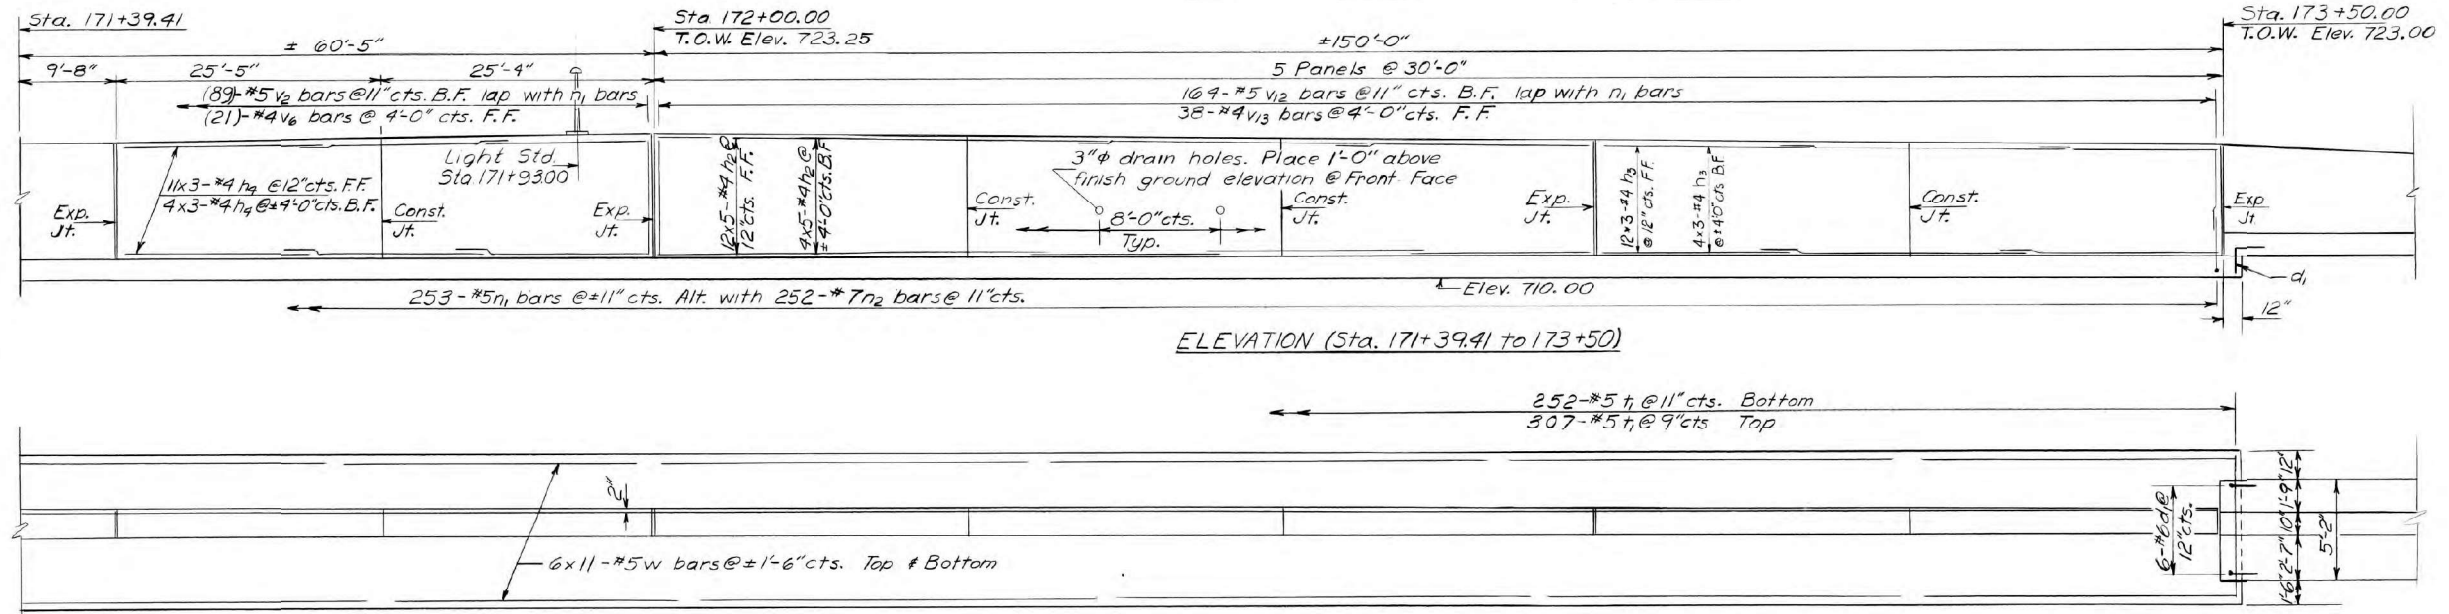 Sta. 171+39.41
Sta. 172+00.00
T.O.W. Elev. 723.25
Sta. 173+50.00
T.O.W. Elev. 723.00
± 60'-5"
±150'-0"
9'-8"
25'-5"
25'-4"
5 Panels @ 30'-0"
(89)-#5 v2 bars @11" cts. B.F. lap with n1 bars
(21)-#4v6 bars @ 4'-0" cts. F.F.
164-#5 v12 bars @11" cts. B.F. lap with n1 bars
38-#4v13 bars @ 4'-0" cts. F.F.
Light Std.
Sta 171+93.00
11x3-#4 h4 @12"cts. F.F.
4x3-#4 h4 @±4'-0"cts. B.F.
Exp.
Jt.
Const.
Jt.
Exp.
Jt.
12x5-#4 h2 @
12"cts. F.F.
4x5-#4h2 @
±4'-0"cts. B.F.
Const.
Jt.
3"φ drain holes. Place 1'-0" above
finish ground elevation @ Front Face
8'-0"cts.
Typ.
Const.
Jt.
Exp.
Jt.
12x3-#4 h3
@ 12" cts. F.F.
4x3-#4 h3
@±4'0"cts B.F.
Const.
Jt.
Exp
Jt.
d1
12"
253-#5n1 bars @±11" cts. Alt. with 252-#7n2 bars @ 11"cts.
Elev. 710.00
ELEVATION (Sta. 171+39.41 to 173+50)
252-#5 t1 @11" cts. Bottom
307-#5 t1 @ 9"cts Top
2"
6x11-#5w bars @±1'-6"cts. Top & Bottom
6-#6d1@
12"cts.
12"
1'-9"
10"
2'-7"
1'-6"
5'-2"